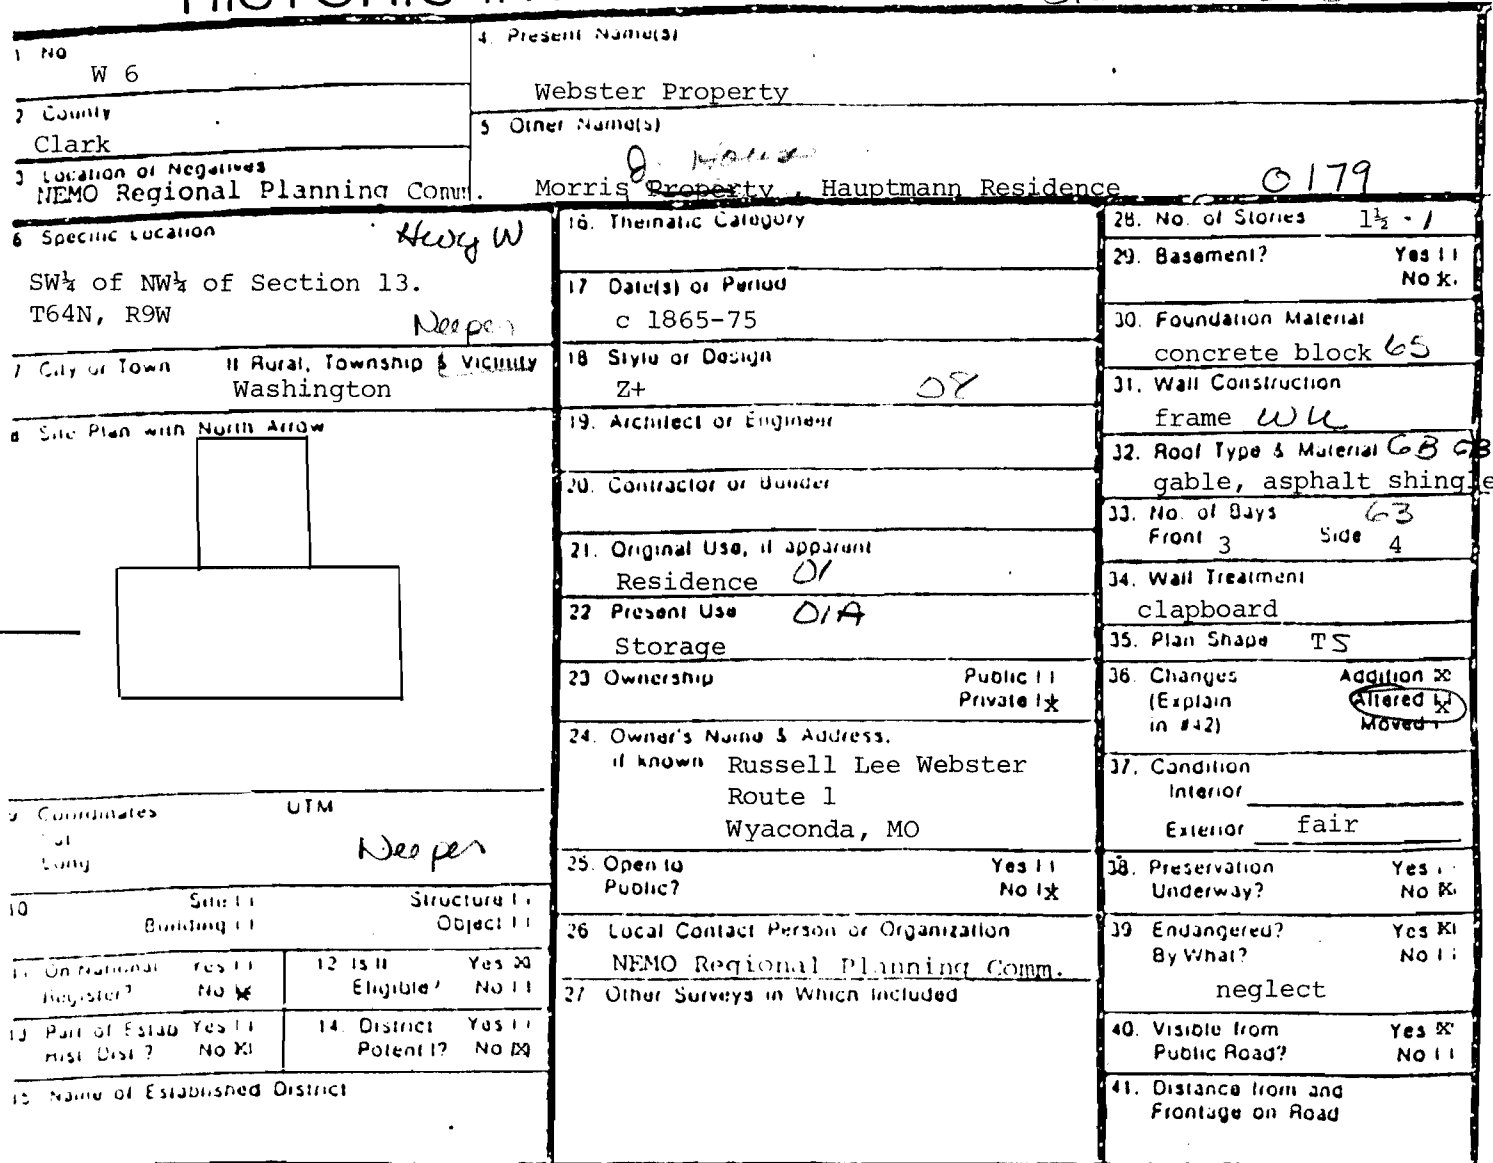 1 No
W 6
2 County
Clark
3 Location of Negatives
NEMO Regional Planning Comm.
4. Present Name(s)
Webster Property
5 Other Name(s)
J. House
Morris Property, Hauptmann Residence 0179
6 Specific Location Hwy W
SW¼ of NW¼ of Section 13.
T64N, R9W
Neeper
7 City or Town If Rural, Township & Vicinity
Washington
8 Site Plan with North Arrow
9 Coordinates UTM
Lat
Long
Neeper
10 Site Structure
Building Object
11 On National Register? Yes No X
12 Is It Eligible? Yes X No
13 Part of Estab Hist. Dist.? Yes No X
14. District Potent'l? Yes No X
15 Name of Established District
16. Thematic Category
17 Date(s) or Period
c 1865-75
18 Style or Design
Z+ 08
19. Architect or Engineer
20. Contractor or Builder
21. Original Use, if apparent
Residence 01
22 Present Use 01A
Storage
23 Ownership Public
Private X
24. Owner's Name & Address,
if known Russell Lee Webster
Route 1
Wyaconda, MO
25. Open to Yes
Public? No X
26 Local Contact Person or Organization
NEMO Regional Planning Comm.
27 Other Surveys in Which Included
28. No. of Stories 1½ - 1
29. Basement? Yes
No X
30. Foundation Material
concrete block 65
31. Wall Construction
frame WU
32. Roof Type & Material GB GB
gable, asphalt shingle
33. No. of Bays 63
Front 3 Side 4
34. Wall Treatment
clapboard
35. Plan Shape TS
36. Changes Addition X
(Explain Altered X
in #42) Moved
37. Condition
Interior
Exterior fair
38. Preservation Yes
Underway? No X
39 Endangered? Yes X
By What? No
neglect
40. Visible from Yes X
Public Road? No
41. Distance from and
Frontage on Road